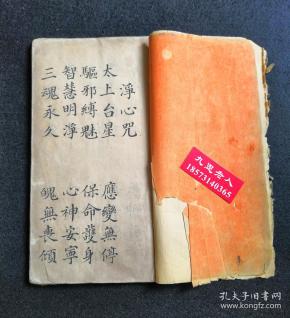 淨心咒
太上台星　應變無停
驅邪縛魅　保命護身
智慧明淨　心神安寧
三魂永久　魄無喪傾
九思老人
18573140365
孔夫子旧书网